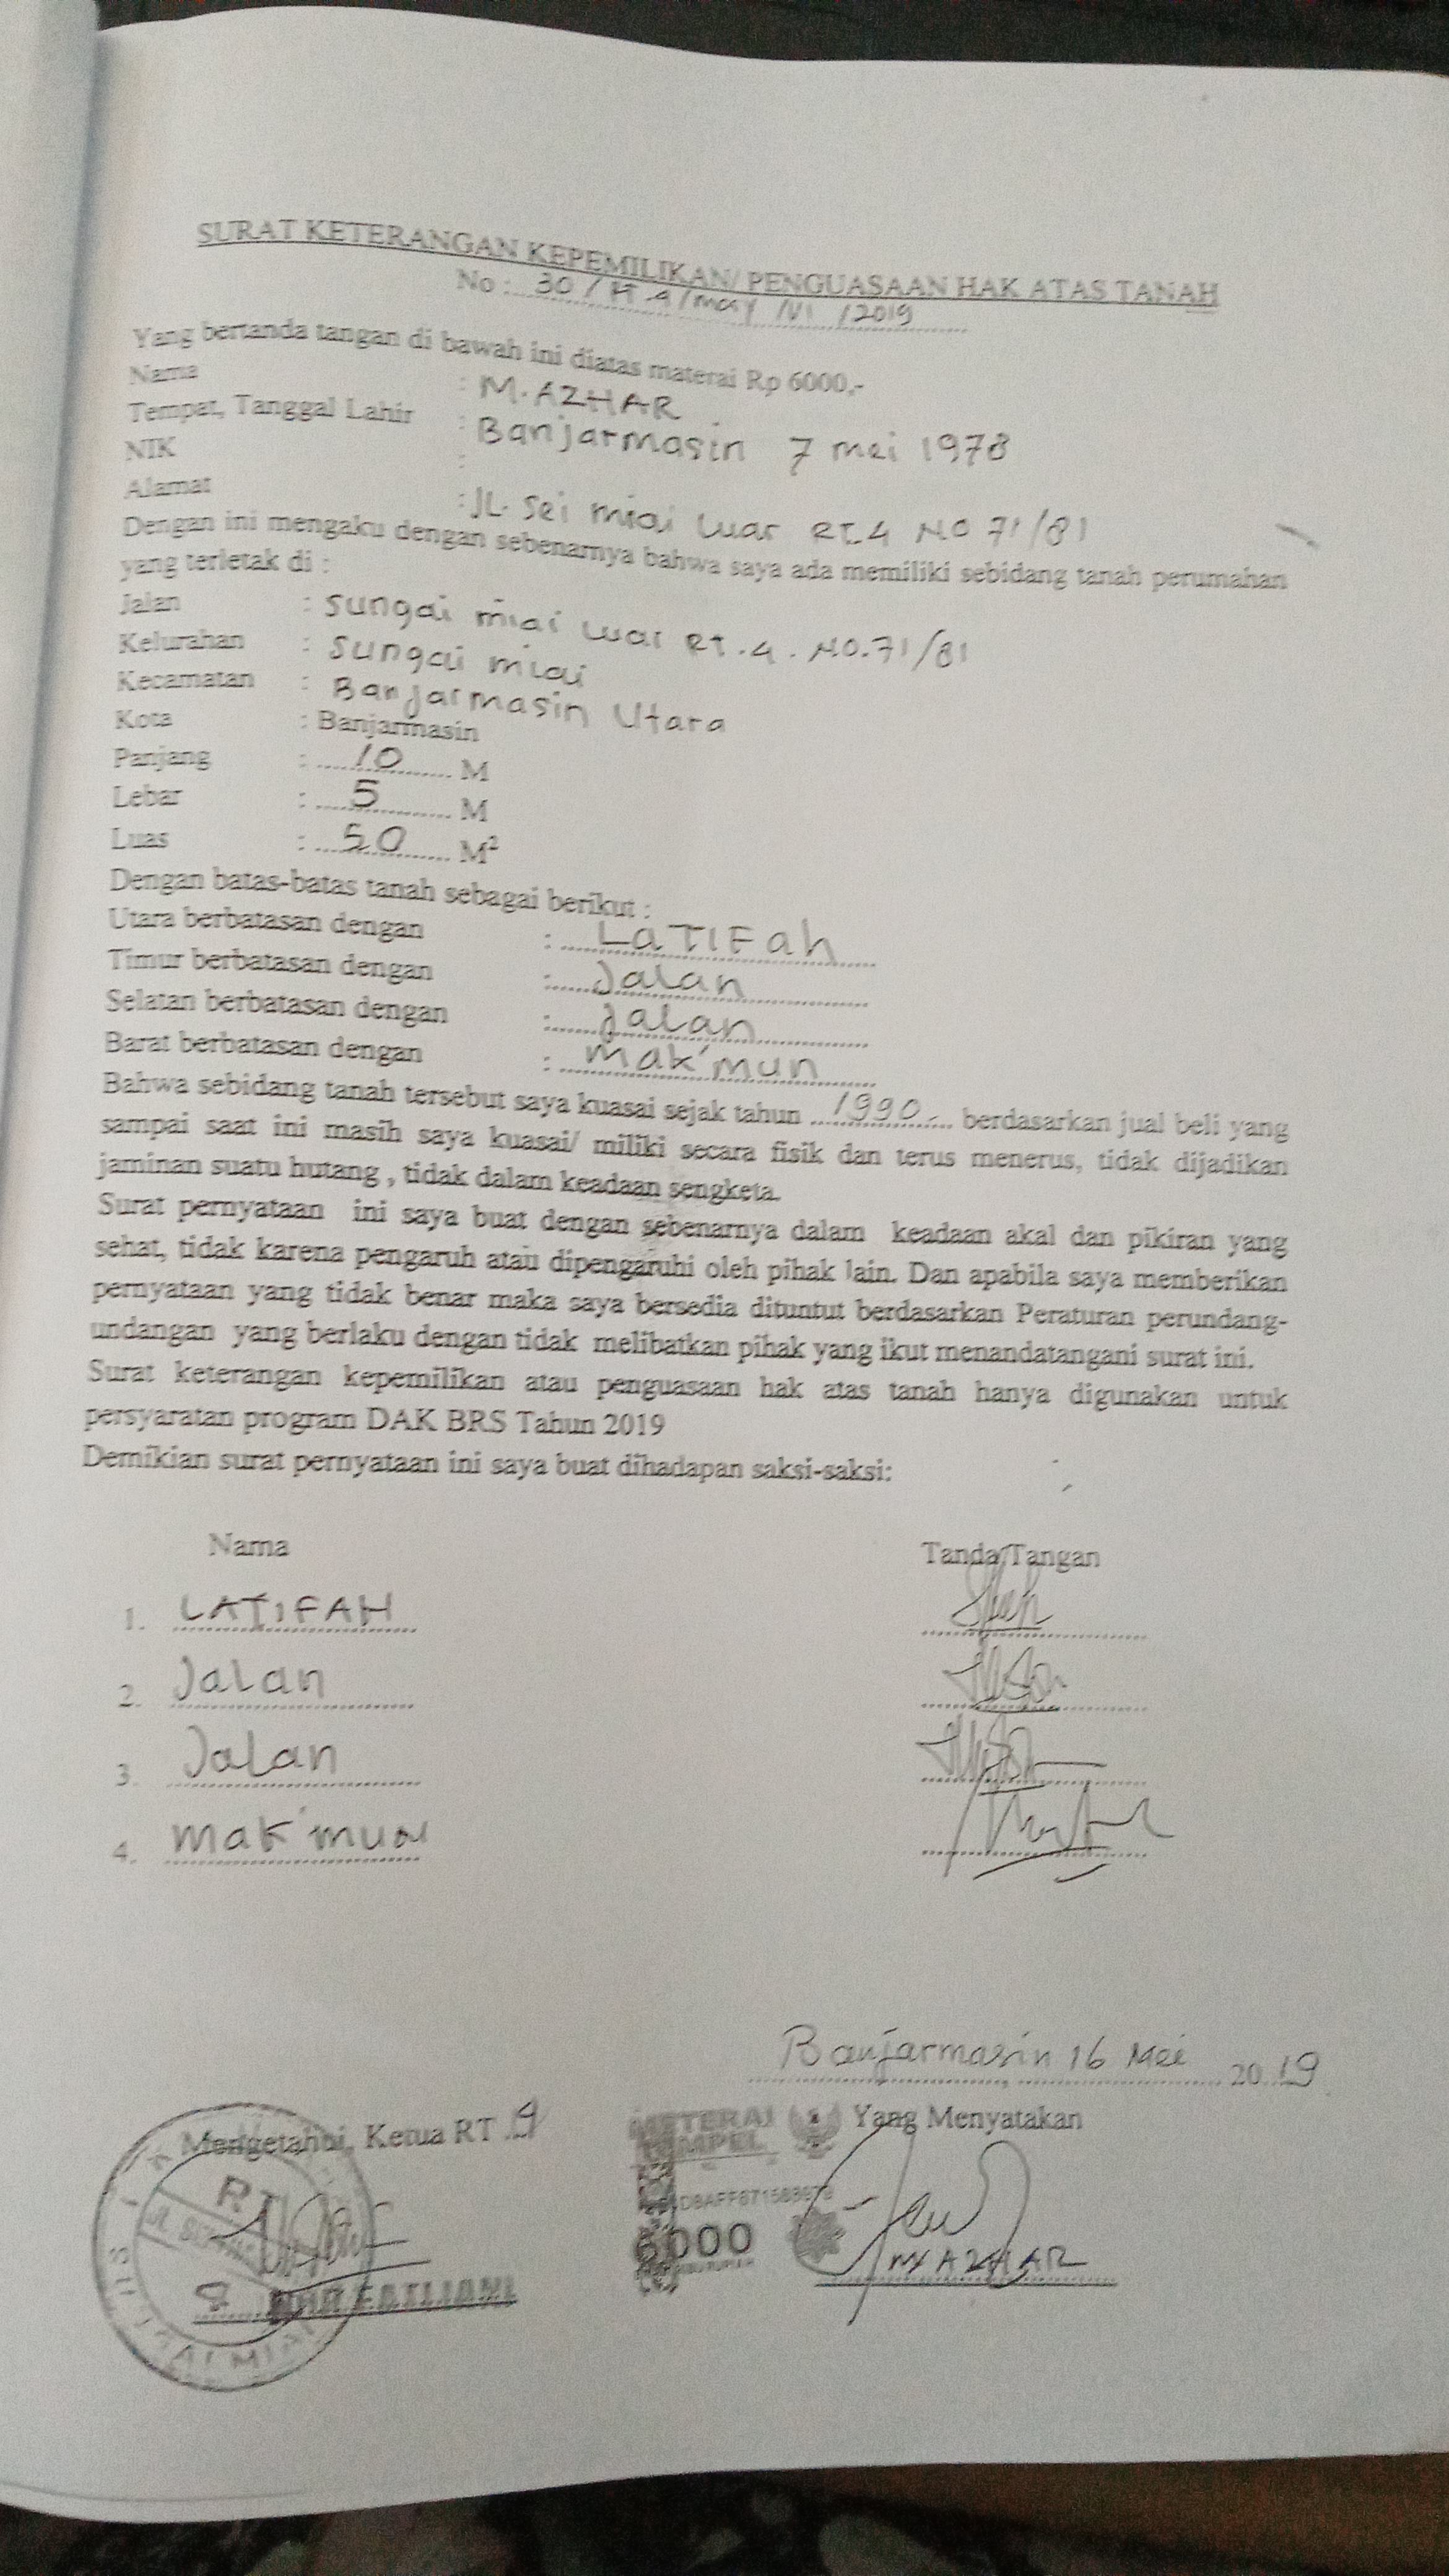 SURAT KETERANGAN KEPEMILIKAN/ PENGUASAAN HAK ATAS TANAH
No : 30 / RT.4/may /VI /2019
Yang bertanda tangan di bawah ini diatas materai Rp 6000,-
Nama : M. AZHAR
Tempat, Tanggal Lahir : Banjarmasin 7 mei 1978
NIK :
Alamat : JL. Sei miai Luar RT.4 NO 71/81
Dengan ini mengaku dengan sebenarnya bahwa saya ada memiliki sebidang tanah perumahan
yang terletak di :
Jalan : Sungai miai Luar RT.4. NO.71/81
Kelurahan : Sungai miai
Kecamatan : Banjarmasin Utara
Kota : Banjarmasin
Panjang : 10 M
Lebar : 5 M
Luas : 50 M²
Dengan batas-batas tanah sebagai berikut :
Utara berbatasan dengan : LaTIFah
Timur berbatasan dengan : Jalan
Selatan berbatasan dengan : Jalan
Barat berbatasan dengan : mak'mun
Bahwa sebidang tanah tersebut saya kuasai sejak tahun 1990. berdasarkan jual beli yang
sampai saat ini masih saya kuasai/ miliki secara fisik dan terus menerus, tidak dijadikan
jaminan suatu hutang , tidak dalam keadaan sengketa.
Surat pernyataan ini saya buat dengan sebenarnya dalam keadaan akal dan pikiran yang
sehat, tidak karena pengaruh atau dipengaruhi oleh pihak lain. Dan apabila saya memberikan
pernyataan yang tidak benar maka saya bersedia dituntut berdasarkan Peraturan perundang-
undangan yang berlaku dengan tidak melibatkan pihak yang ikut menandatangani surat ini.
Surat keterangan kepemilikan atau penguasaan hak atas tanah hanya digunakan untuk
persyaratan program DAK BRS Tahun 2019
Demikian surat pernyataan ini saya buat dihadapan saksi-saksi:
Nama Tanda Tangan
1. LATIFAH
2. Jalan
3. Jalan
4. mak'mun
Banjarmasin 16 Mei 2019
Mengetahui, Ketua RT 4 METERAI TEMPEL Yang Menyatakan
RT
6000
M. AZHAR